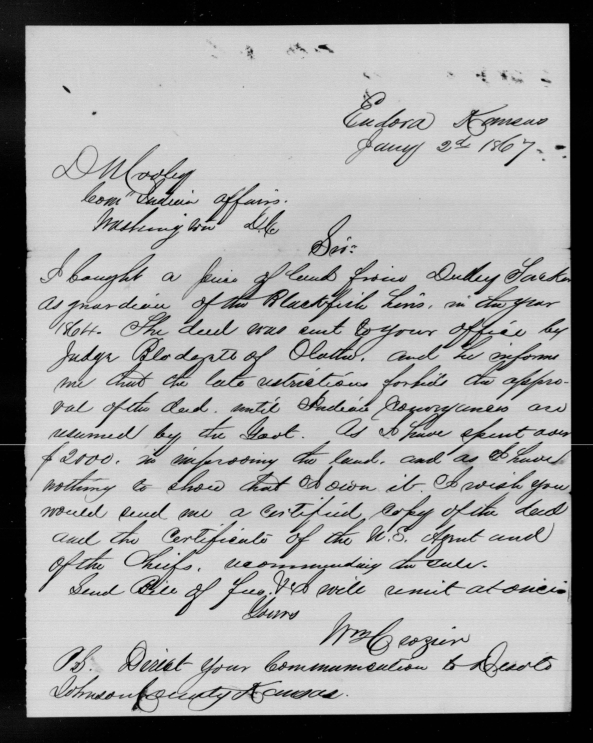 Eudora Kansas
Jany 2d 1867.
D N Cooley
Com" Indian affairs.
Washington D.C
Sir:
I bought a piece of land from Dudley Tucker
as guardian of the Blackfish heirs, in the year
1864. The deed was sent to your office by
Judge Blodgett of Olathe, and he informs
me that the late restrictions forbids the appro-
val of the deed, until Indian Conveyances are
resumed by the Govt. As I have spent over
$2000. in improving the land, and as I have
nothing to show that I own it. I wish you
would send me a certified copy of the deed
and the Certificate of the U.S. Agent and
of the Chiefs, recommending the sale.
Send Bill of fees, & I will remit at once
Yours
Wm Crozier
P.S. Direct your Communication to Desoto
Johnson County Kansas.